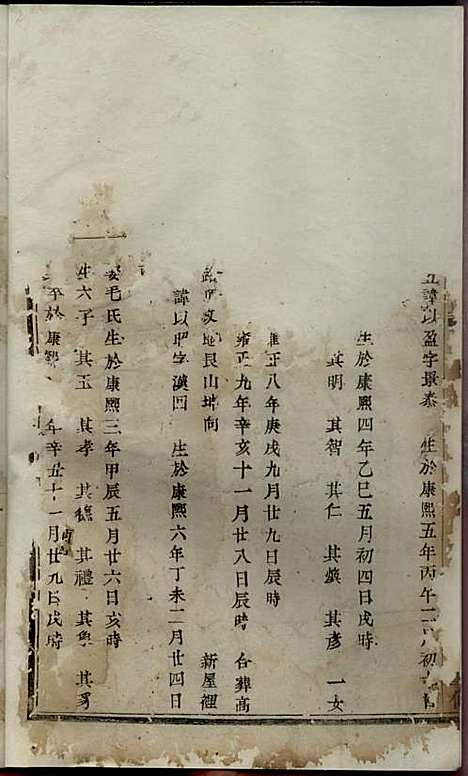 諱以盈字景泰 生於康熙五年丙午二月初
生於康熙四年乙巳五月初四日戌時
其明 其智 其仁 其 其彥 一女
雍正八年庚戌九月廿九日辰時
雍正九年辛亥十一月廿八日辰時 合葬高
地艮山坤向 新屋裡
諱以昭字漢回 生於康熙六年丁未二月廿四日
娶毛氏生於康熙三年甲辰五月廿六日亥時
生六子 其玉 其孝 其穗 其禮 其 其
於康熙 年辛丑十一月廿九日戌時